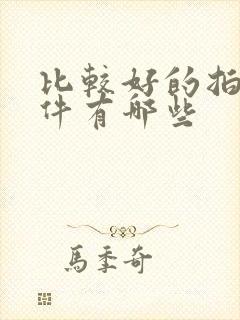 比較好的拍
件有哪些
馬季奇